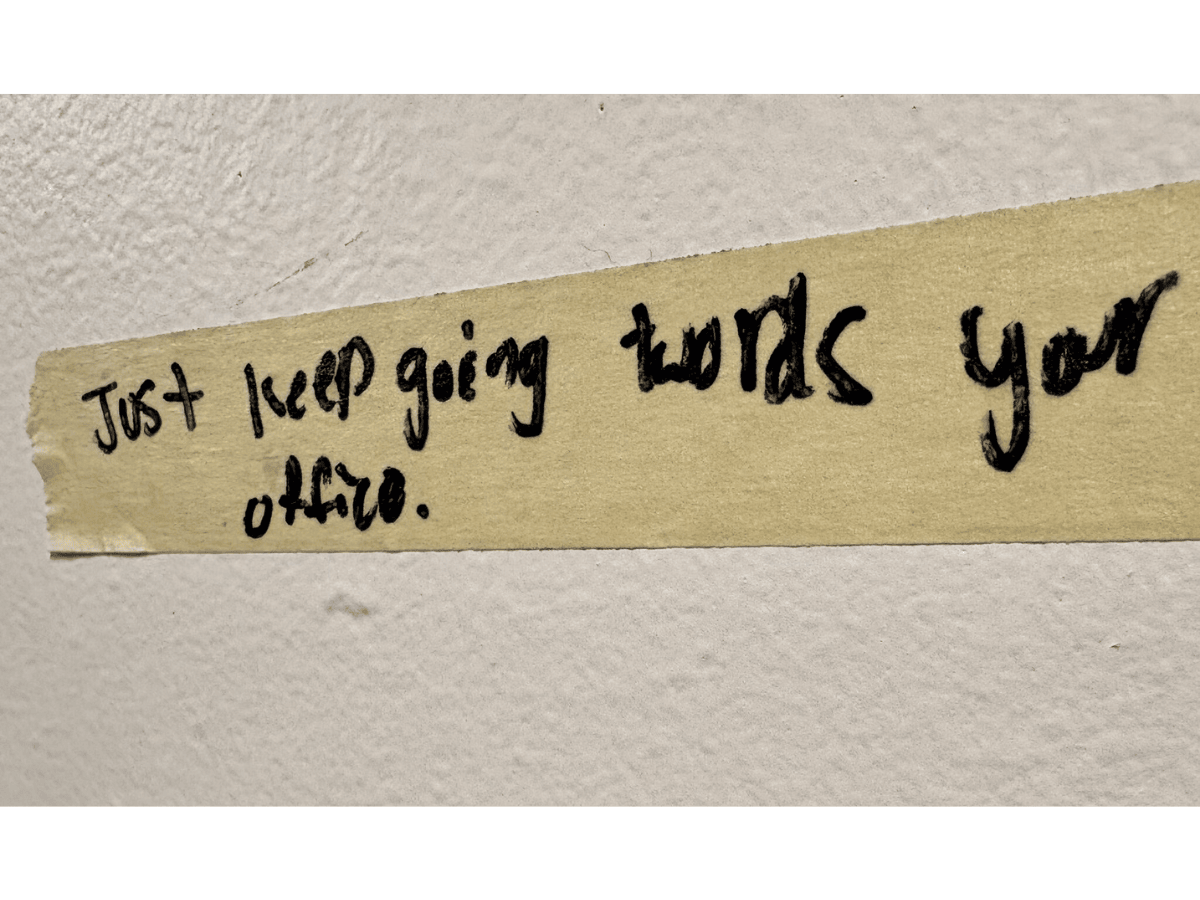 Just keep going twords your
office.